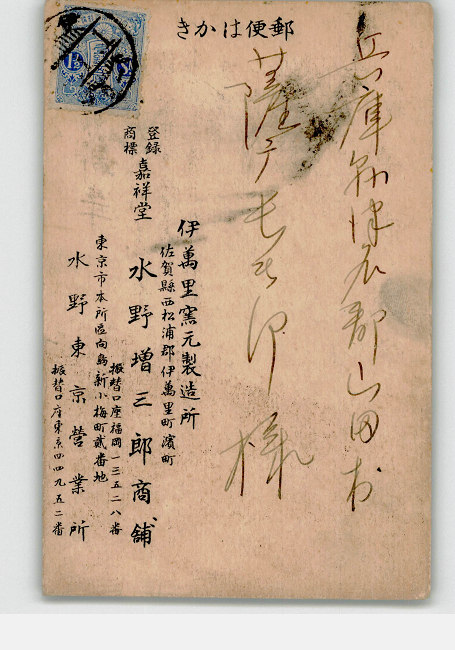 きかは便郵
兵庫縣津名郡山田村
薩戸長次郎様
伊萬里窯元製造所
佐賀縣西松浦郡伊萬里町濱町
登録
商標
嘉祥堂
水野增三郎商舗
振替口座福岡一三五二八番
東京市本所區向島新小梅町貳番地
水野東京營業所
振替口座東京四四九五二番
1½